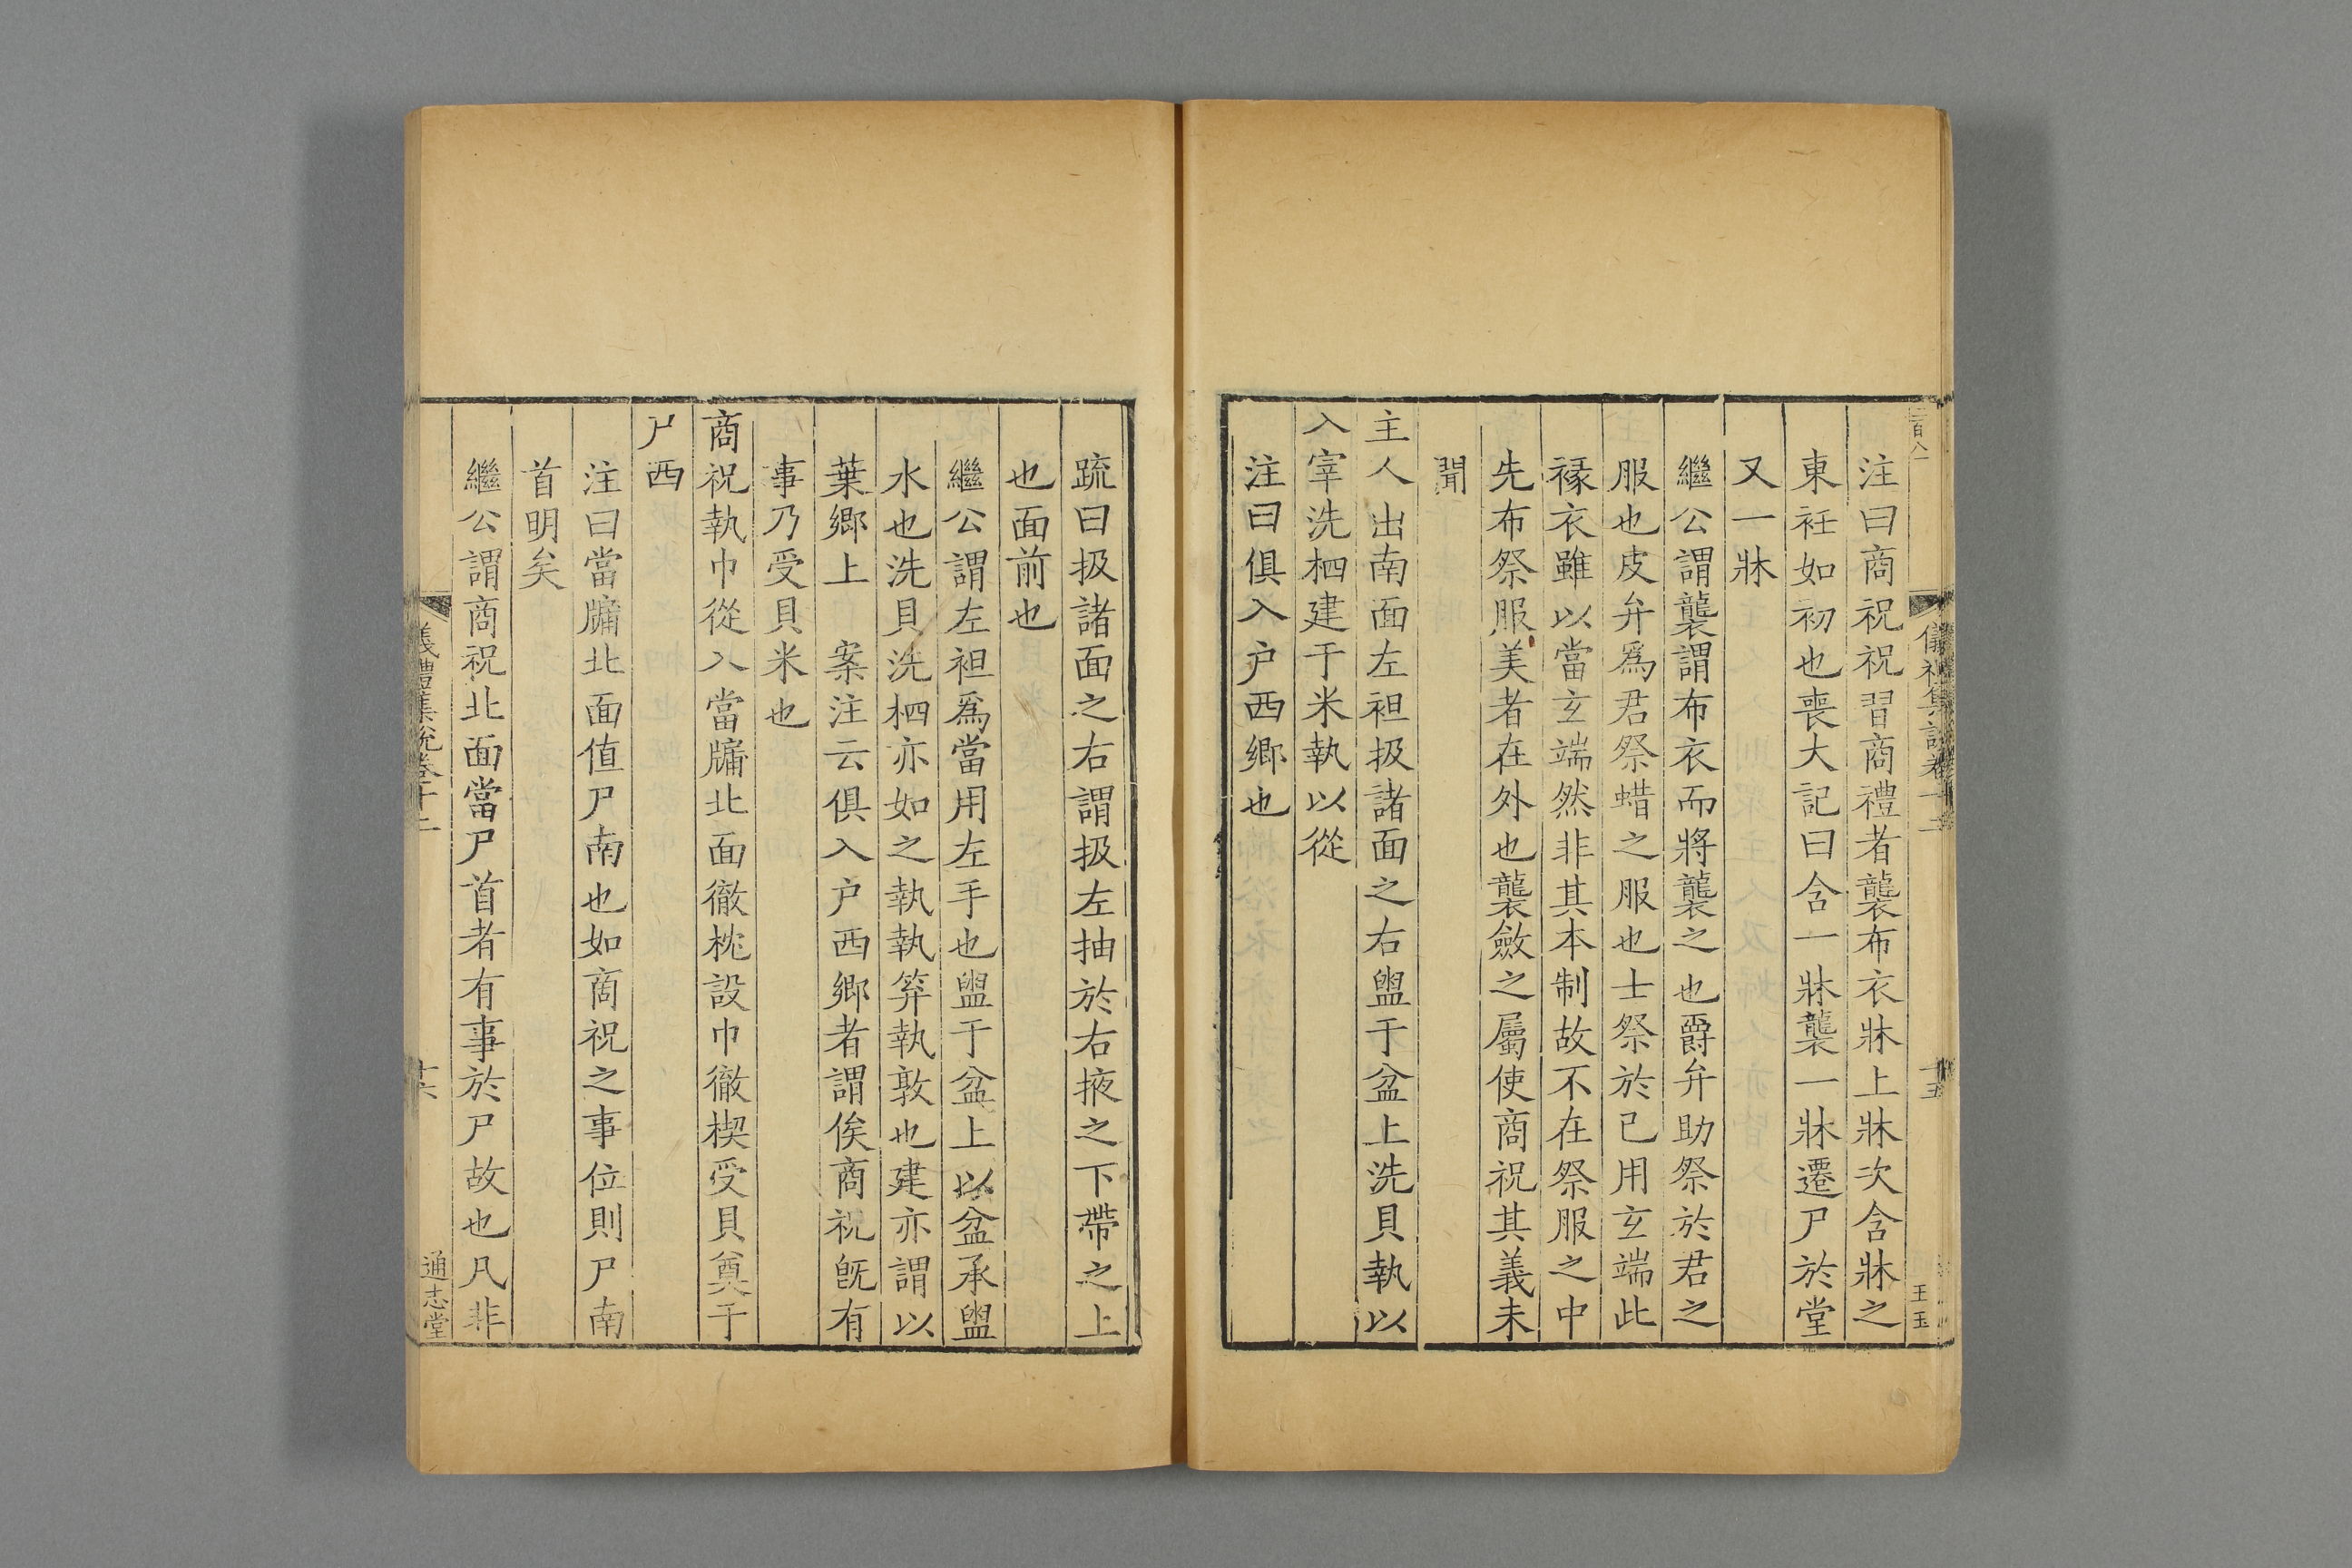 注曰商祝祝習商禮者襲布衣牀上牀次含牀之
東衽如初也喪大記曰含一牀襲一牀遷尸於堂
又一牀
繼公謂襲謂布衣而將襲之也爵弁助祭於君之
服也皮弁爲君祭蜡之服也士祭於已用玄端此
褖衣雖以當玄端然非其本制故不在祭服之中
先布祭服美者在外也襲斂之屬使商祝其義未
聞
主人出南面左袒扱諸面之右盥于盆上洗貝執以
入宰洗柶建于米執以從
注曰俱入户西鄉也
疏曰扱諸面之右謂扱左抽於右掖之下帶之上
也面前也
繼公謂左袒爲當用左手也盥于盆上以盆承盥
水也洗貝洗柶亦如之執執笲執敦也建亦謂以
葉鄉上 案注云俱入户西鄉者謂俟商祝旣有
事乃受貝米也
商祝執巾從入當牖北面徹枕設巾徹楔受貝奠于
尸西
注曰當牖北面值尸南也如商祝之事位則尸南
首明矣
繼公謂商祝北面當尸首者有事於尸故也凡非
儀禮集說卷十二
十六
通志堂